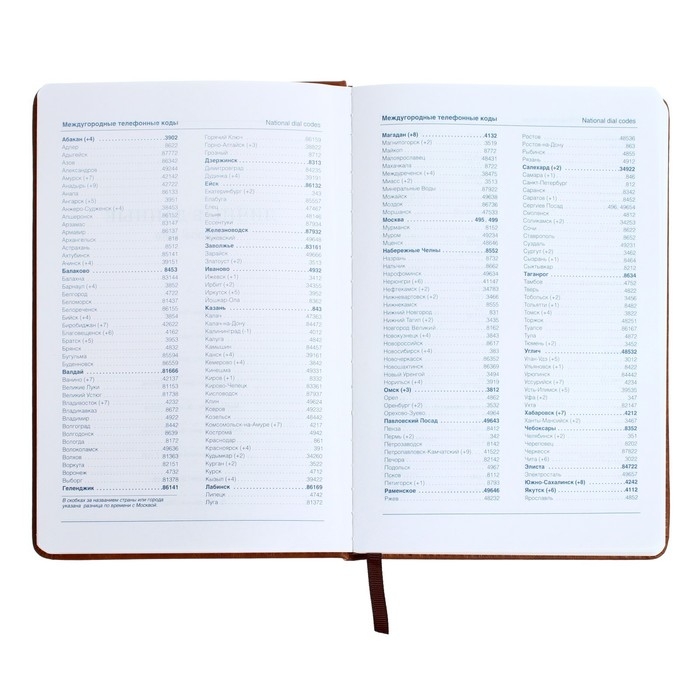 Междугородные телефонные коды National dial codes
Абакан (+4) 3902
Адлер 8622
Адыгейск 87772
Азов 86342
Александров 49244
Амдерма
Анадырь (+9) 42722
Анапа 86133
Ангарск (+5) 3951
Анжеро-Судженск (+4) 38453
Апшеронск 86152
Арзамас 83147
Армавир 86137
Архангельск 818
Астрахань 8512
Ахтубинск 85141
Ачинск (+4) 39151
Балаково 8453
Балахна 83144
Барнаул (+4) 3852
Белгород 4722
Беломорск 81437
Белореченск 86155
Бийск (+4) 3854
Биробиджан (+7) 42622
Благовещенск (+6) 4162
Братск (+5) 3953
Брянск 4832
Бугульма 85594
Буденновск 86559
Валдай 81666
Ванино (+7) 42137
Великие Луки 81153
Великий Устюг 81738
Владивосток (+7) 4232
Владикавказ 8672
Владимир 4922
Волгоград 8442
Волгодонск 8639
Вологда 8172
Волоколамск 49636
Волхов 81363
Воркута 82151
Воронеж 4732
Выборг 81378
Геленджик 86141
В скобках за названием страны или города
указана разница по времени с Москвой.
Горячий Ключ 86159
Горно-Алтайск (+3) 38822
Грозный 8712
Дзержинск 8313
Димитровград 84235
Дудинка (+4) 39191
Ейск 86132
Екатеринбург (+2) 343
Елабуга 85557
Елец 47467
Ельня 48146
Ессентуки 87934
Железноводск 87932
Жуковский 49648
Заволжье 83161
Зарайск 49666
Златоуст (+2) 3513
Иваново 4932
Ижевск (+1) 3412
Ирбит (+2) 34355
Иркутск (+5) 3952
Йошкар Ола 8362
Казань 843
Калач 47363
Калач-на-Дону 84472
Калининград (-1) 4012
Калуга 4842
Камышин 84457
Канск (+4) 39161
Кемерово (+4) 3842
Кинешма 49331
Киров (+1) 8332
Кирово-Чепецк 83361
Кисловодск 87937
Клин 49624
Ковров 49232
Козельск 48442
Комсомольск-на-Амуре (+7) 4217
Кострома 4942
Краснодар 861
Красноярск (+4) 391
Кудымкар (+2) 34260
Курган (+2) 3522
Курск 4712
Кызыл (+4) 39422
Лабинск 86169
Липецк 4742
Луга 81372
Междугородные телефонные коды National dial codes
Магадан (+8) 4132
Магнитогорск (+2) 3519
Майкоп 8772
Малоярославец 48431
Махачкала 8722
Междуреченск (+4) 38475
Миасс (+2) 3513
Минеральные Воды 87922
Можайск 49638
Моздок 86736
Моршанск 47533
Москва 495, 499
Мурманск 8152
Муром 49234
Мценск 48646
Набережные Челны 8552
Назрань 8732
Нальчик 8662
Нарофоминск 49634
Нерюнгри (+6) 41147
Нефтекамск (+2) 34783
Нижневартовск (+2) 3466
Нижнекамск 8555
Нижний Новгород 831
Нижний Тагил (+2) 3435
Новгород Великий 8162
Новокузнецк (+4) 3843
Новороссийск 8617
Новосибирск (+4) 383
Новочеркасск 86352
Новошахтинск 86369
Новый Уренгой 3494
Норильск (+4) 3919
Омск (+3) 3812
Орел 4862
Оренбург (+2) 3532
Орехово-Зуево 4964
Павловский Посад 49643
Пенза 8412
Пермь (+2) 342
Петрозаводск 8142
Петропавловск-Камчатский (+9) 41522
Печора 82142
Подольск 4967
Псков 8112
Пятигорск 8793
Раменское 49646
Ржев 48232
Ростов 48536
Ростов-на-Дону 863
Рыбинск 4855
Рязань 4912
Салехард (+2) 34922
Самара (+1) 846
Санкт-Петербург 812
Саранск 8342
Саратов (+1) 8452
Сергиев Посад 496, 49654
Смоленск 4812
Соликамск (+2) 34253
Сочи 8622
Ставрополь 8652
Суздаль 49231
Сургут (+2) 3462
Сызрань (+1) 8464
Сыктывкар 8212
Таганрог 8634
Тамбов 4752
Тверь 4822
Тобольск (+2) 3456
Тольятти (+1) 8482
Томск (+4) 3822
Торжок 48251
Туапсе 86167
Тула 4872
Тюмень (+2) 3452
Углич 48532
Улан Удэ (+5) 3012
Ульяновск (+1) 8422
Урюпинск 84442
Уссурийск (+7) 4234
Усть-Илимск (+5) 39535
Уфа (+2) 347
Ухта 82147
Хабаровск (+7) 4212
Ханты-Мансийск (+2) 3467
Чебоксары 8352
Челябинск (+2) 351
Череповец 8202
Черкесск 87822
Чита (+6) 3022
Элиста 84722
Электросталь 49657
Южно-Сахалинск (+8) 4242
Якутск (+6) 4112
Ярославль 4852